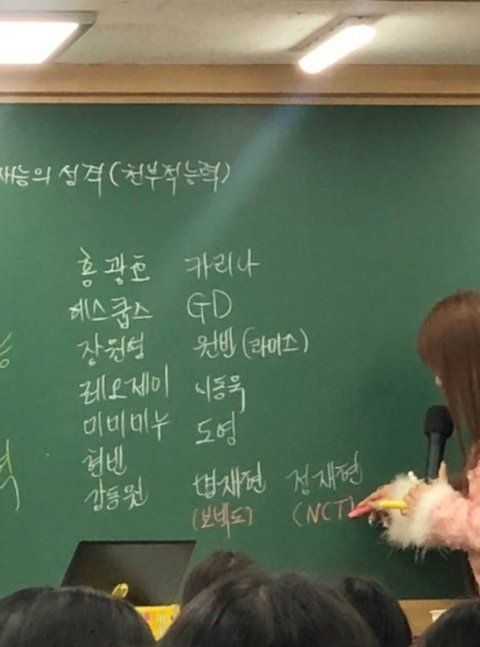 재능의 성격(천부적능력)
홍광호 카리나
에스쿱스 GD
장원영 원빈(라이즈)
레오제이 이동욱
미미미누 도영
현빈
강동원 명재현 정재현
(보넥도) (NCT)